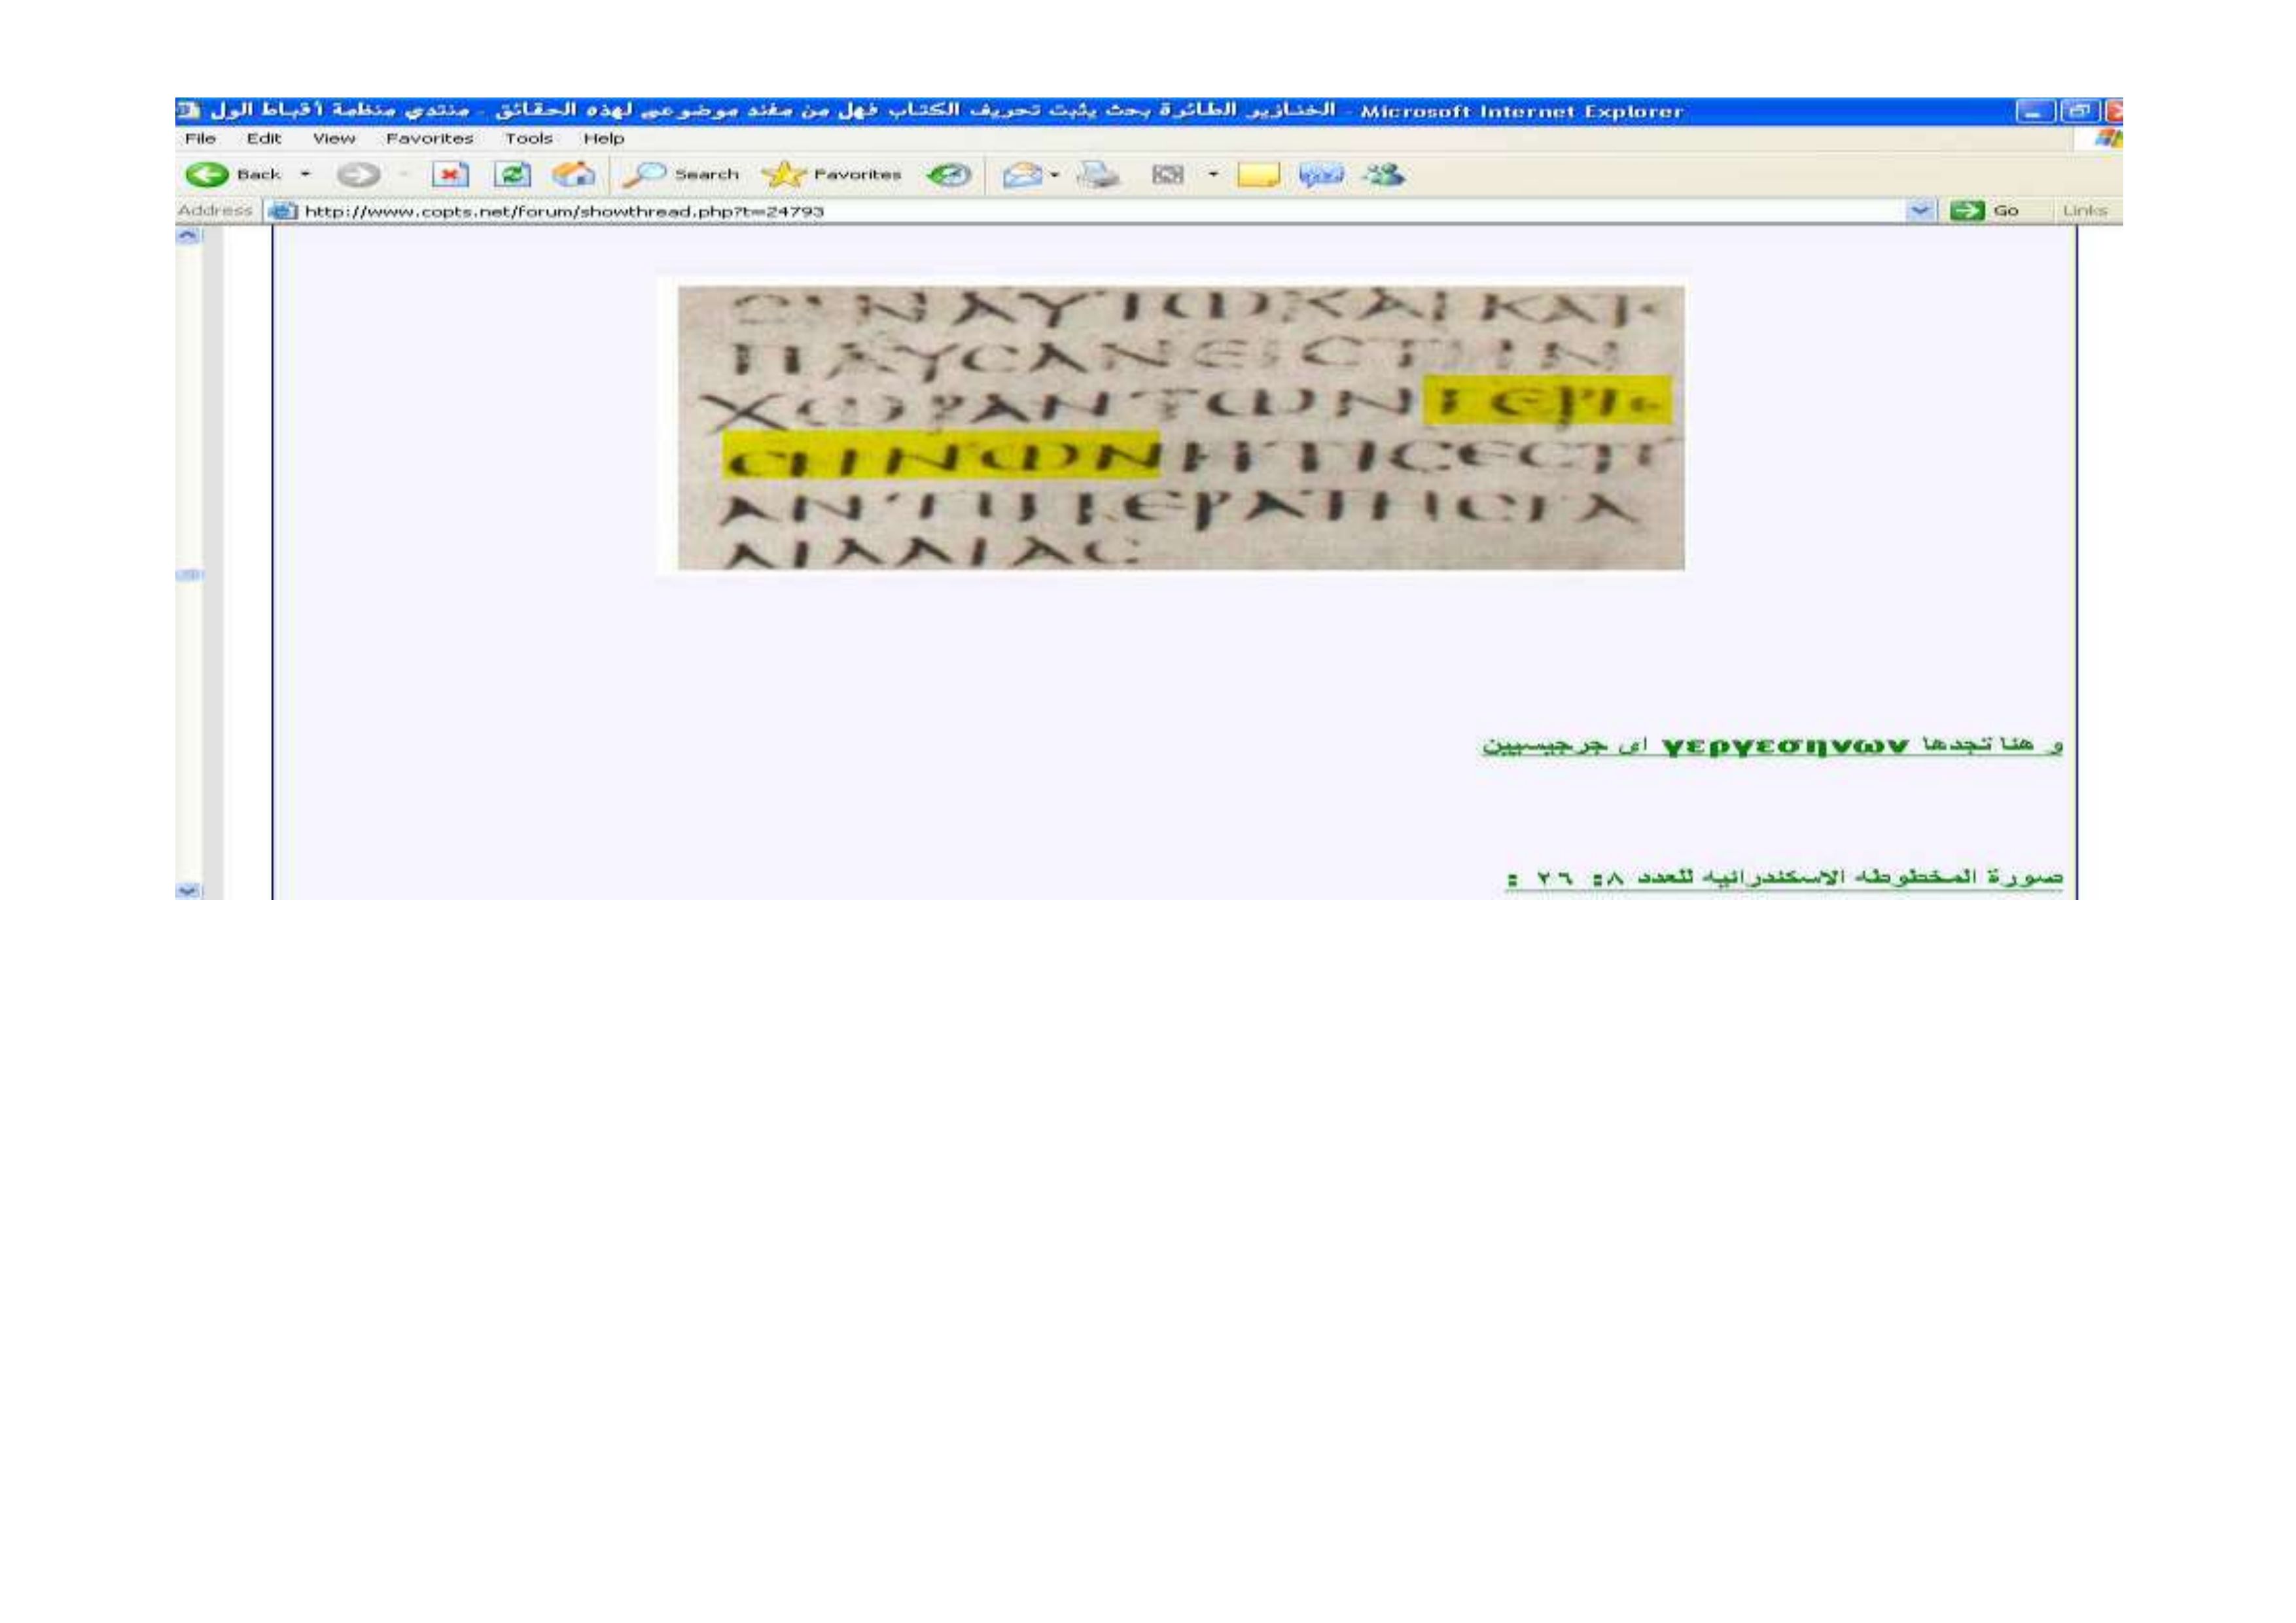 الخنازير الطائرة بحث يثبت تحريف الكتاب فهل من مفند موضوعي لهذه الحقائق - منتدي منظمة أقباط الول - Microsoft Internet Explorer
File Edit View Favorites Tools Help
Back Search Favorites
Address http://www.copts.net/forum/showthread.php?t=24793 Go Links
ΠΛΥCΑΝΕΙCΤΗΝ
ΧΩΡΑΝΤΩΝΓΕΡΓΕ
CΗΝΩΝΗΤΙCΕCΤΙ
ΑΝΤΙΠΕΡΑΤΗCΓΑ
ΛΙΛΑΙΑC
و هنا تجدها γεργεσηνων اى جرجيسيين
صورة المخطوطه الاسكندرانيه للعدد ٨: ٢٦ :